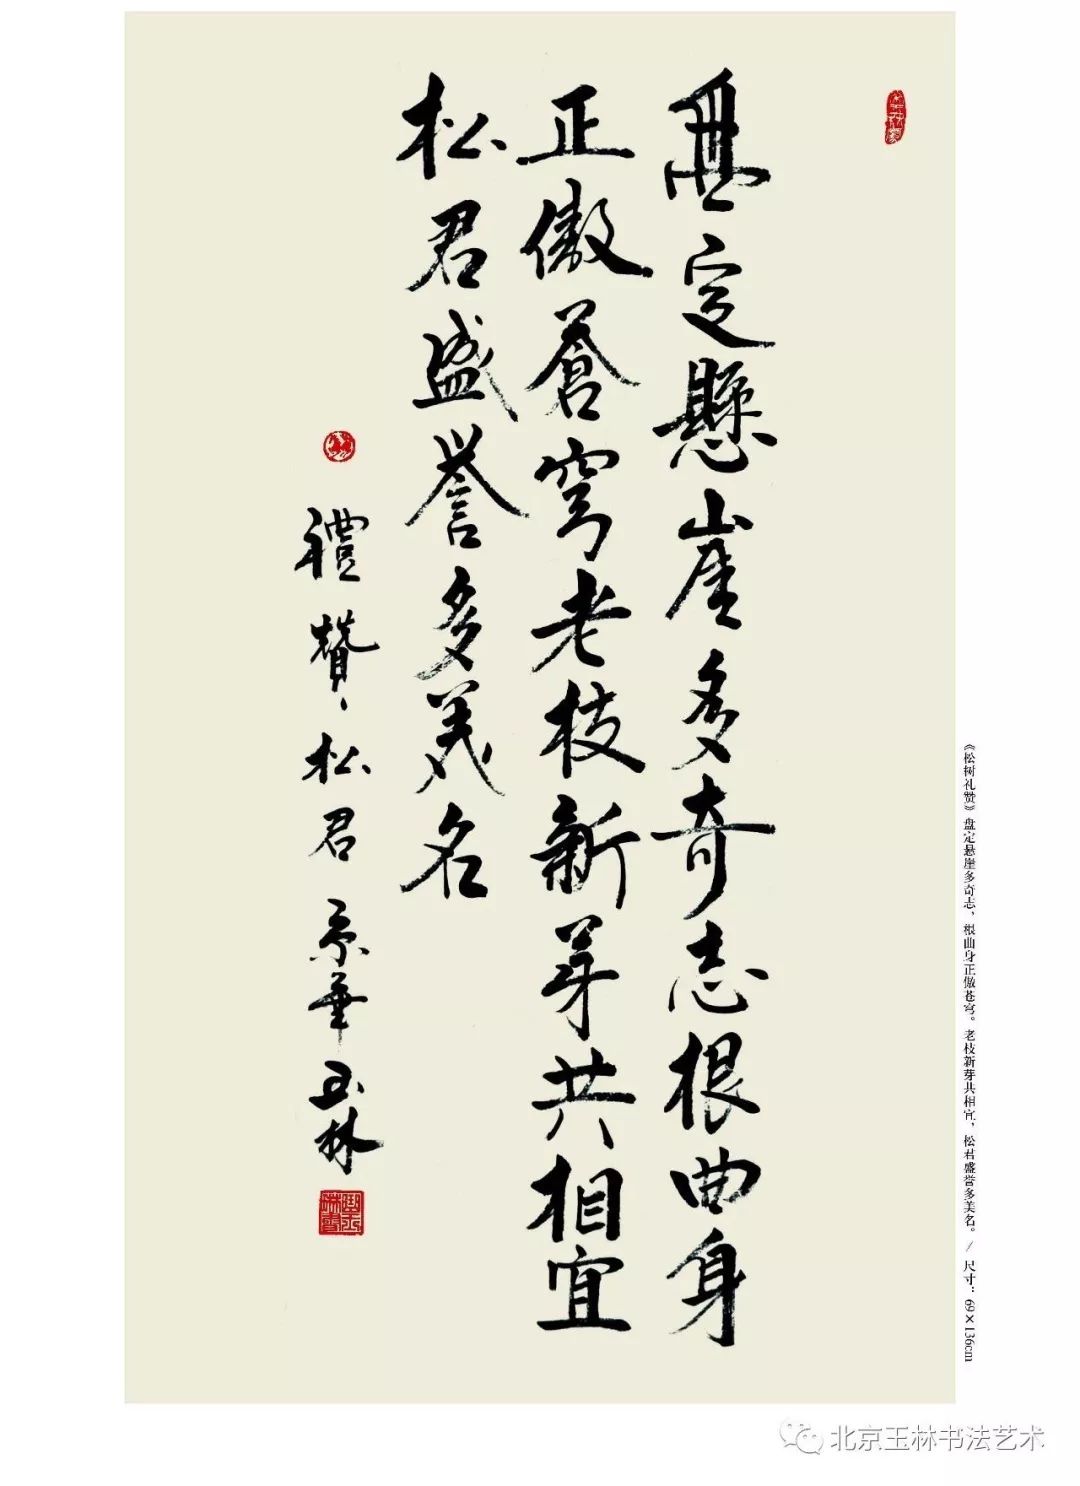 盤定懸崖多奇志根曲身
正傲蒼穹老枝新芽共相宜
松君盛誉多美名
禮贊松君 京華玉林
《松树礼赞》盘定悬崖多奇志，根曲身正傲苍穹。老枝新芽共相宜，松君盛誉多美名。/ 尺寸：69×136cm
北京玉林书法艺术